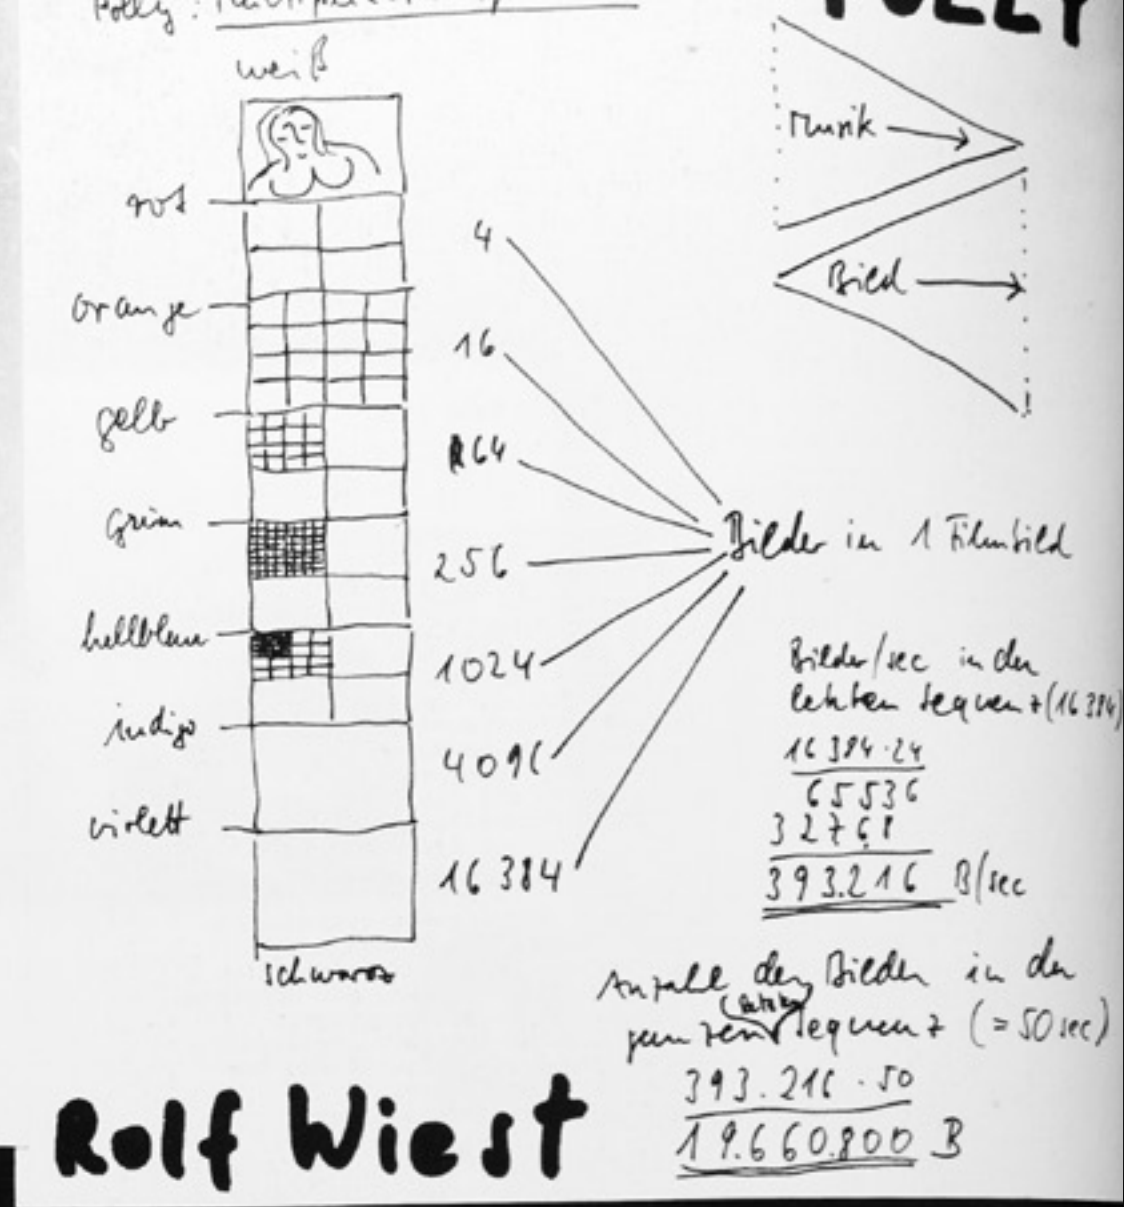 Polly :
POLLY
weiß
rot
orange
gelb
grün
hellblau
indigo
violett
schwarz
4
16
64
256
1024
4096
16 384
Musik
Bild
Bilder in 1 Filmbild
Bilder/sec in der
letzten Sequenz (16 384)
16 384 · 24
65536
32768
393.216 B/sec
Anzahl der Bilder in der
(letzten)
ganzen Sequenz (= 50 sec)
393.216 · 50
19.660.800 B
Rolf Wiest